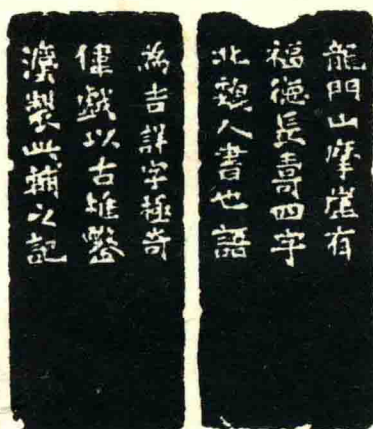 龍門山摩崖有
福德長壽四字
北魏人書也語
為吉詳字極奇
偉戲以古鑿
灋製此補之記